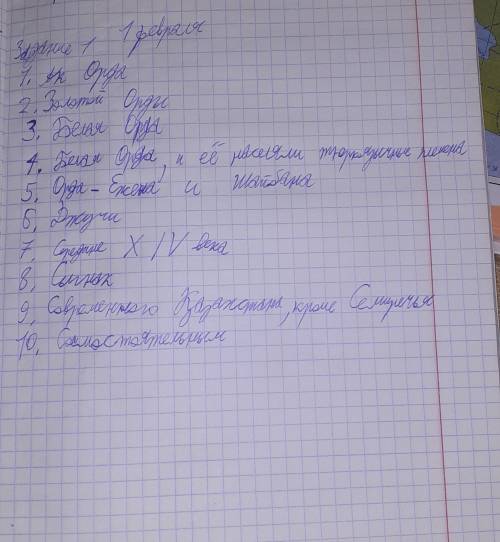 Задание 1 1 февраля
1. Ак Орда
2. Золотой Орды
3. Белая Орда
4. Белая Орда, и её населяли тюркоязычные племена
5. Орда-Ежена и Шайбана
6. Джучи
7. Середине XIV века
8. Сыгнак
9. Современного Казахстана, кроме Семиречья
10. Самостоятельным